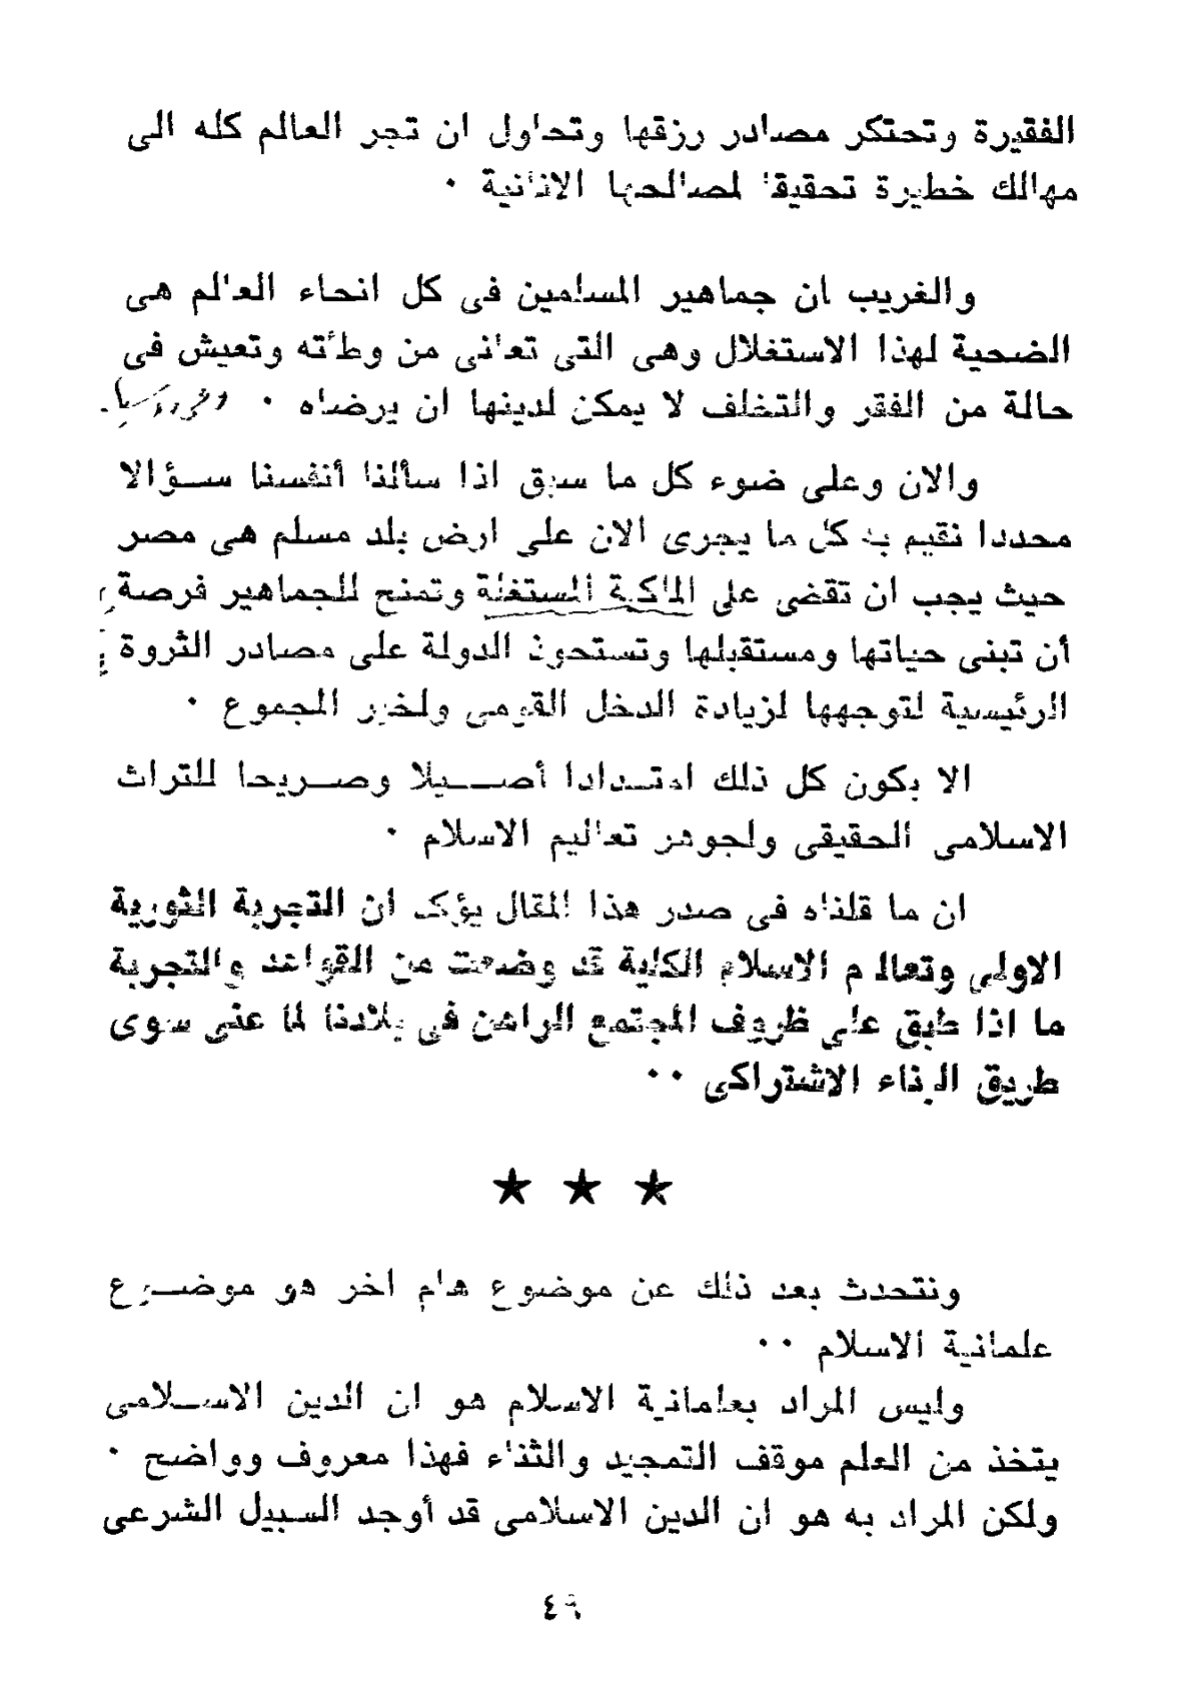 الفقيرة وتحتكر مصادر رزقها وتحاول ان تجر العالم كله الى
مهالك خطيرة تحقيقا لمصالحها الانانية ٠
والغريب ان جماهير المسلمين فى كل انحاء العالم هى
الضحية لهذا الاستغلال وهى التى تعانى من وطأته وتعيش فى
حالة من الفقر والتخلف لا يمكن لدينها ان يرضاه ٠
والان وعلى ضوء كل ما سبق اذا سألنا أنفسنا ســؤالا
محددا نقيم به كل ما يجرى الان على ارض بلد مسلم هى مصر
حيث يجب ان تقضى على الملكية المستغلة وتمنح للجماهير فرصة
أن تبنى حياتها ومستقبلها وتستحوذ الدولة على مصادر الثروة
الرئيسية لتوجهها لزيادة الدخل القومى ولخير المجموع ٠
الا يكون كل ذلك امتـدادا أصــيلا وصــريحا للتراث
الاسلامى الحقيقى ولجوهر تعاليم الاسلام ٠
ان ما قلناه فى صدر هذا المقال يؤكد ان التجربة الثورية
الاولى وتعاليم الاسلام الكلية قد وضعت من القواعد والتجربة
ما اذا طبق على ظروف المجتمع الراهن فى بلادنا لما عنى سوى
طريق البناء الاشتراكى ٠٠
★ ★ ★
ونتحدث بعد ذلك عن موضوع هام اخر هو موضــوع
علمانية الاسلام ٠٠
وليس المراد بعلمانية الاسلام هو ان الدين الاســلامى
يتخذ من العلم موقف التمجيد والثناء فهذا معروف وواضح ٠
ولكن المراد به هو ان الدين الاسلامى قد أوجد السبيل الشرعى
٤٩